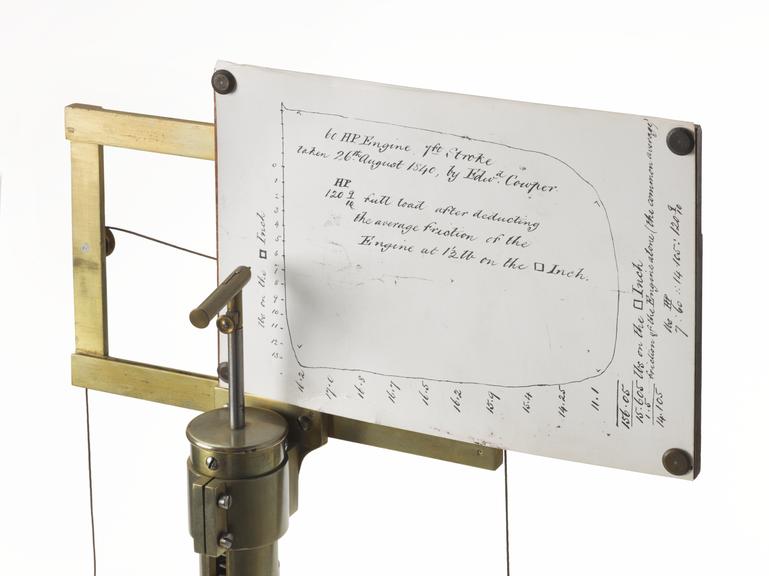 60 HP Engine 7ft Stroke
taken 26th August 1840, by Edwd. Cowper.
HP
120 9/10 full load after deducting
the average friction of the
Engine at 1·2lb on the □ Inch.
lbs on the □ Inch
0
1
2
3
4
5
6
7
8
9
10
11
12
13
16.2
17.0
16.8
16.7
16.5
16.2
15.9
15.4
14.25
11.1
156.05
15.605 lbs on the □ Inch
1.5 friction of the Engine alone (the common average)
14.105
lbs HP
7 : 60 :: 14.105 : 120 9/10